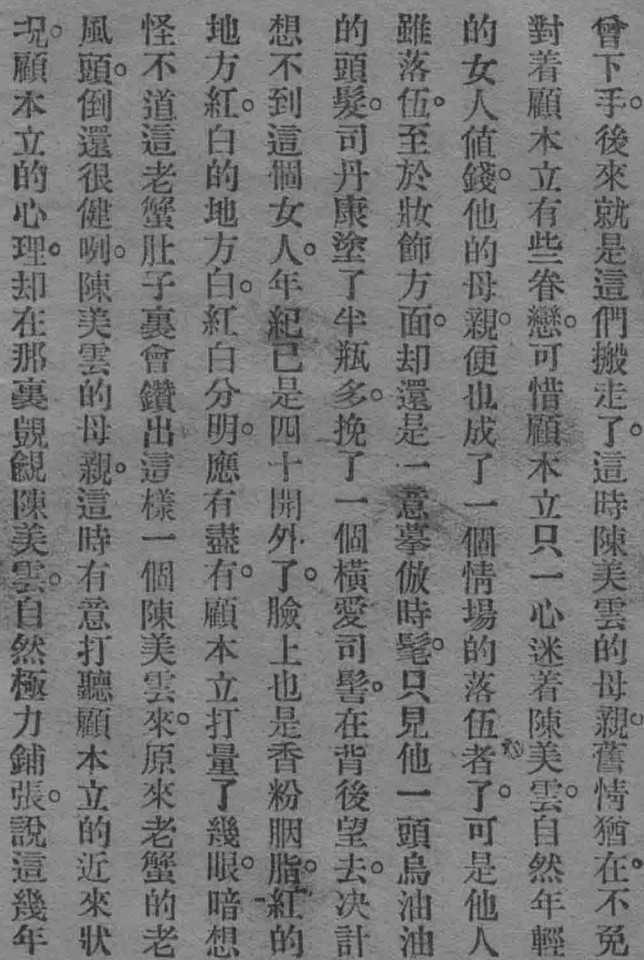 曾下手。後來就是這們搬走了。這時陳美雲的母親。舊情猶在。不免
對着顧木立有些眷戀。可惜顧木立只一心迷着陳美雲。自然年輕
的女人値錢。他的母親。便也成了一個情場的落伍者了。可是他人
雖落伍。至於妝飾方面。却還是一意摹倣時髦。只見他一頭烏油油
的頭髮。司丹康塗了半瓶多。挽了一個橫愛司髻。在背後望去。决計
想不到這個女人。年紀已是四十開外了。臉上也是香粉胭脂。紅的
地方紅。白的地方白。紅白分明。應有盡有。顧本立打量了幾眼。暗想
怪不道這老蟹肚子裏會鑽出這樣一個陳美雲來。原來老蟹的老
風頭。倒還很健咧。陳美雲的母親。這時有意打聽顧本立的近來狀
况。顧本立的心理。却在那裏覬覦陳美雲。自然極力鋪張。說這幾年